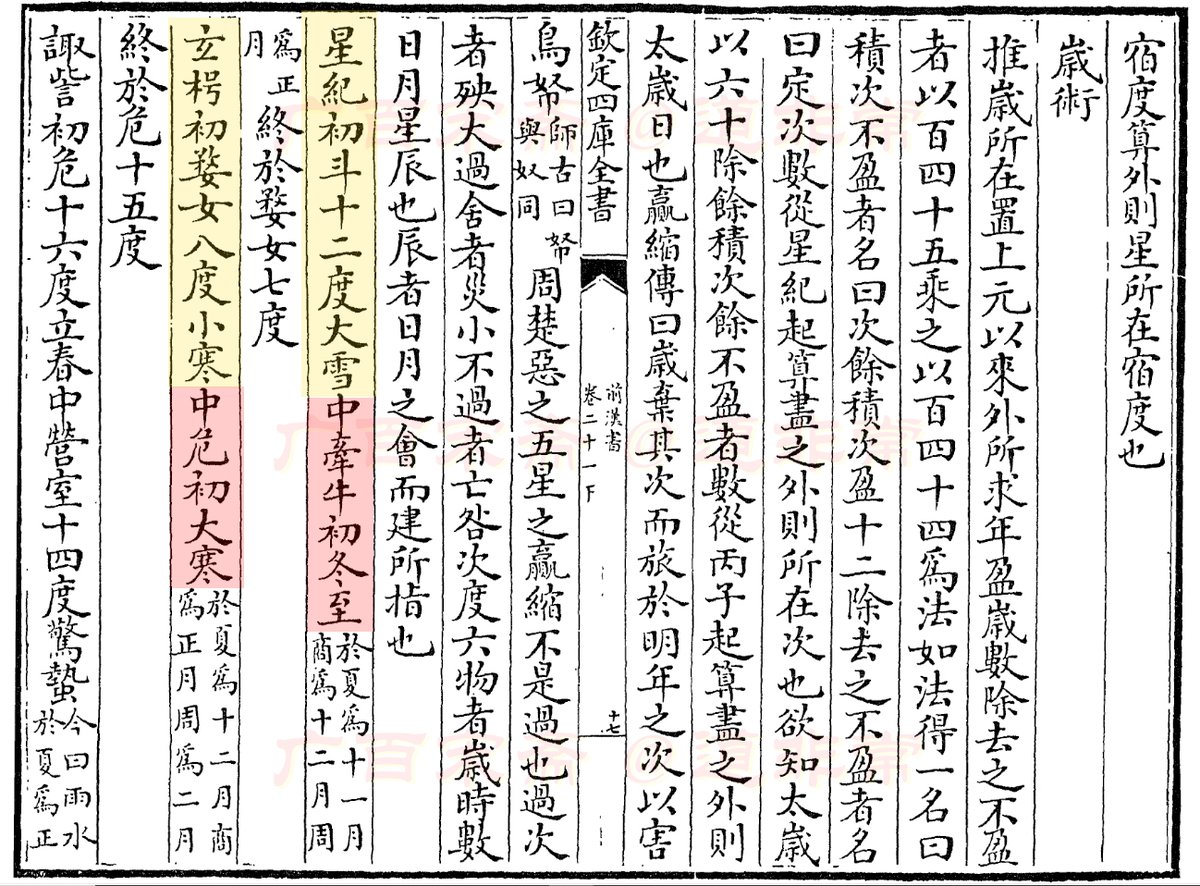 宿度算外則星所在宿度也
歲術
推歲所在置上元以來外所求年盈歲數除去之不盈
者以百四十五乘之以百四十四爲法如法得一名曰
積次不盈者名曰次餘積次盈十二除去之不盈者名
曰定次數從星紀起算盡之外則所在次也欲知太歲
以六十除餘積次餘不盈者數從丙子起算盡之外則
太歲日也贏縮傳曰歲棄其次而旅於明年之次以害
欽定四庫全書
前漢書
卷二十一下
十七
鳥帑師古曰帑與奴同周楚惡之五星之贏縮不是過也過次
者殃大過舍者災小不過者亡咎次度六物者歲時數
日月星辰也辰者日月之會而建所指也
星紀初斗十二度大雪中牽牛初冬至於夏爲十一月商爲十二月周
爲正月終於婺女七度
玄枵初婺女八度小寒中危初大寒於夏爲十二月商爲正月周爲二月
終於危十五度
諏訾初危十六度立春中營室十四度驚蟄今曰雨水於夏爲正